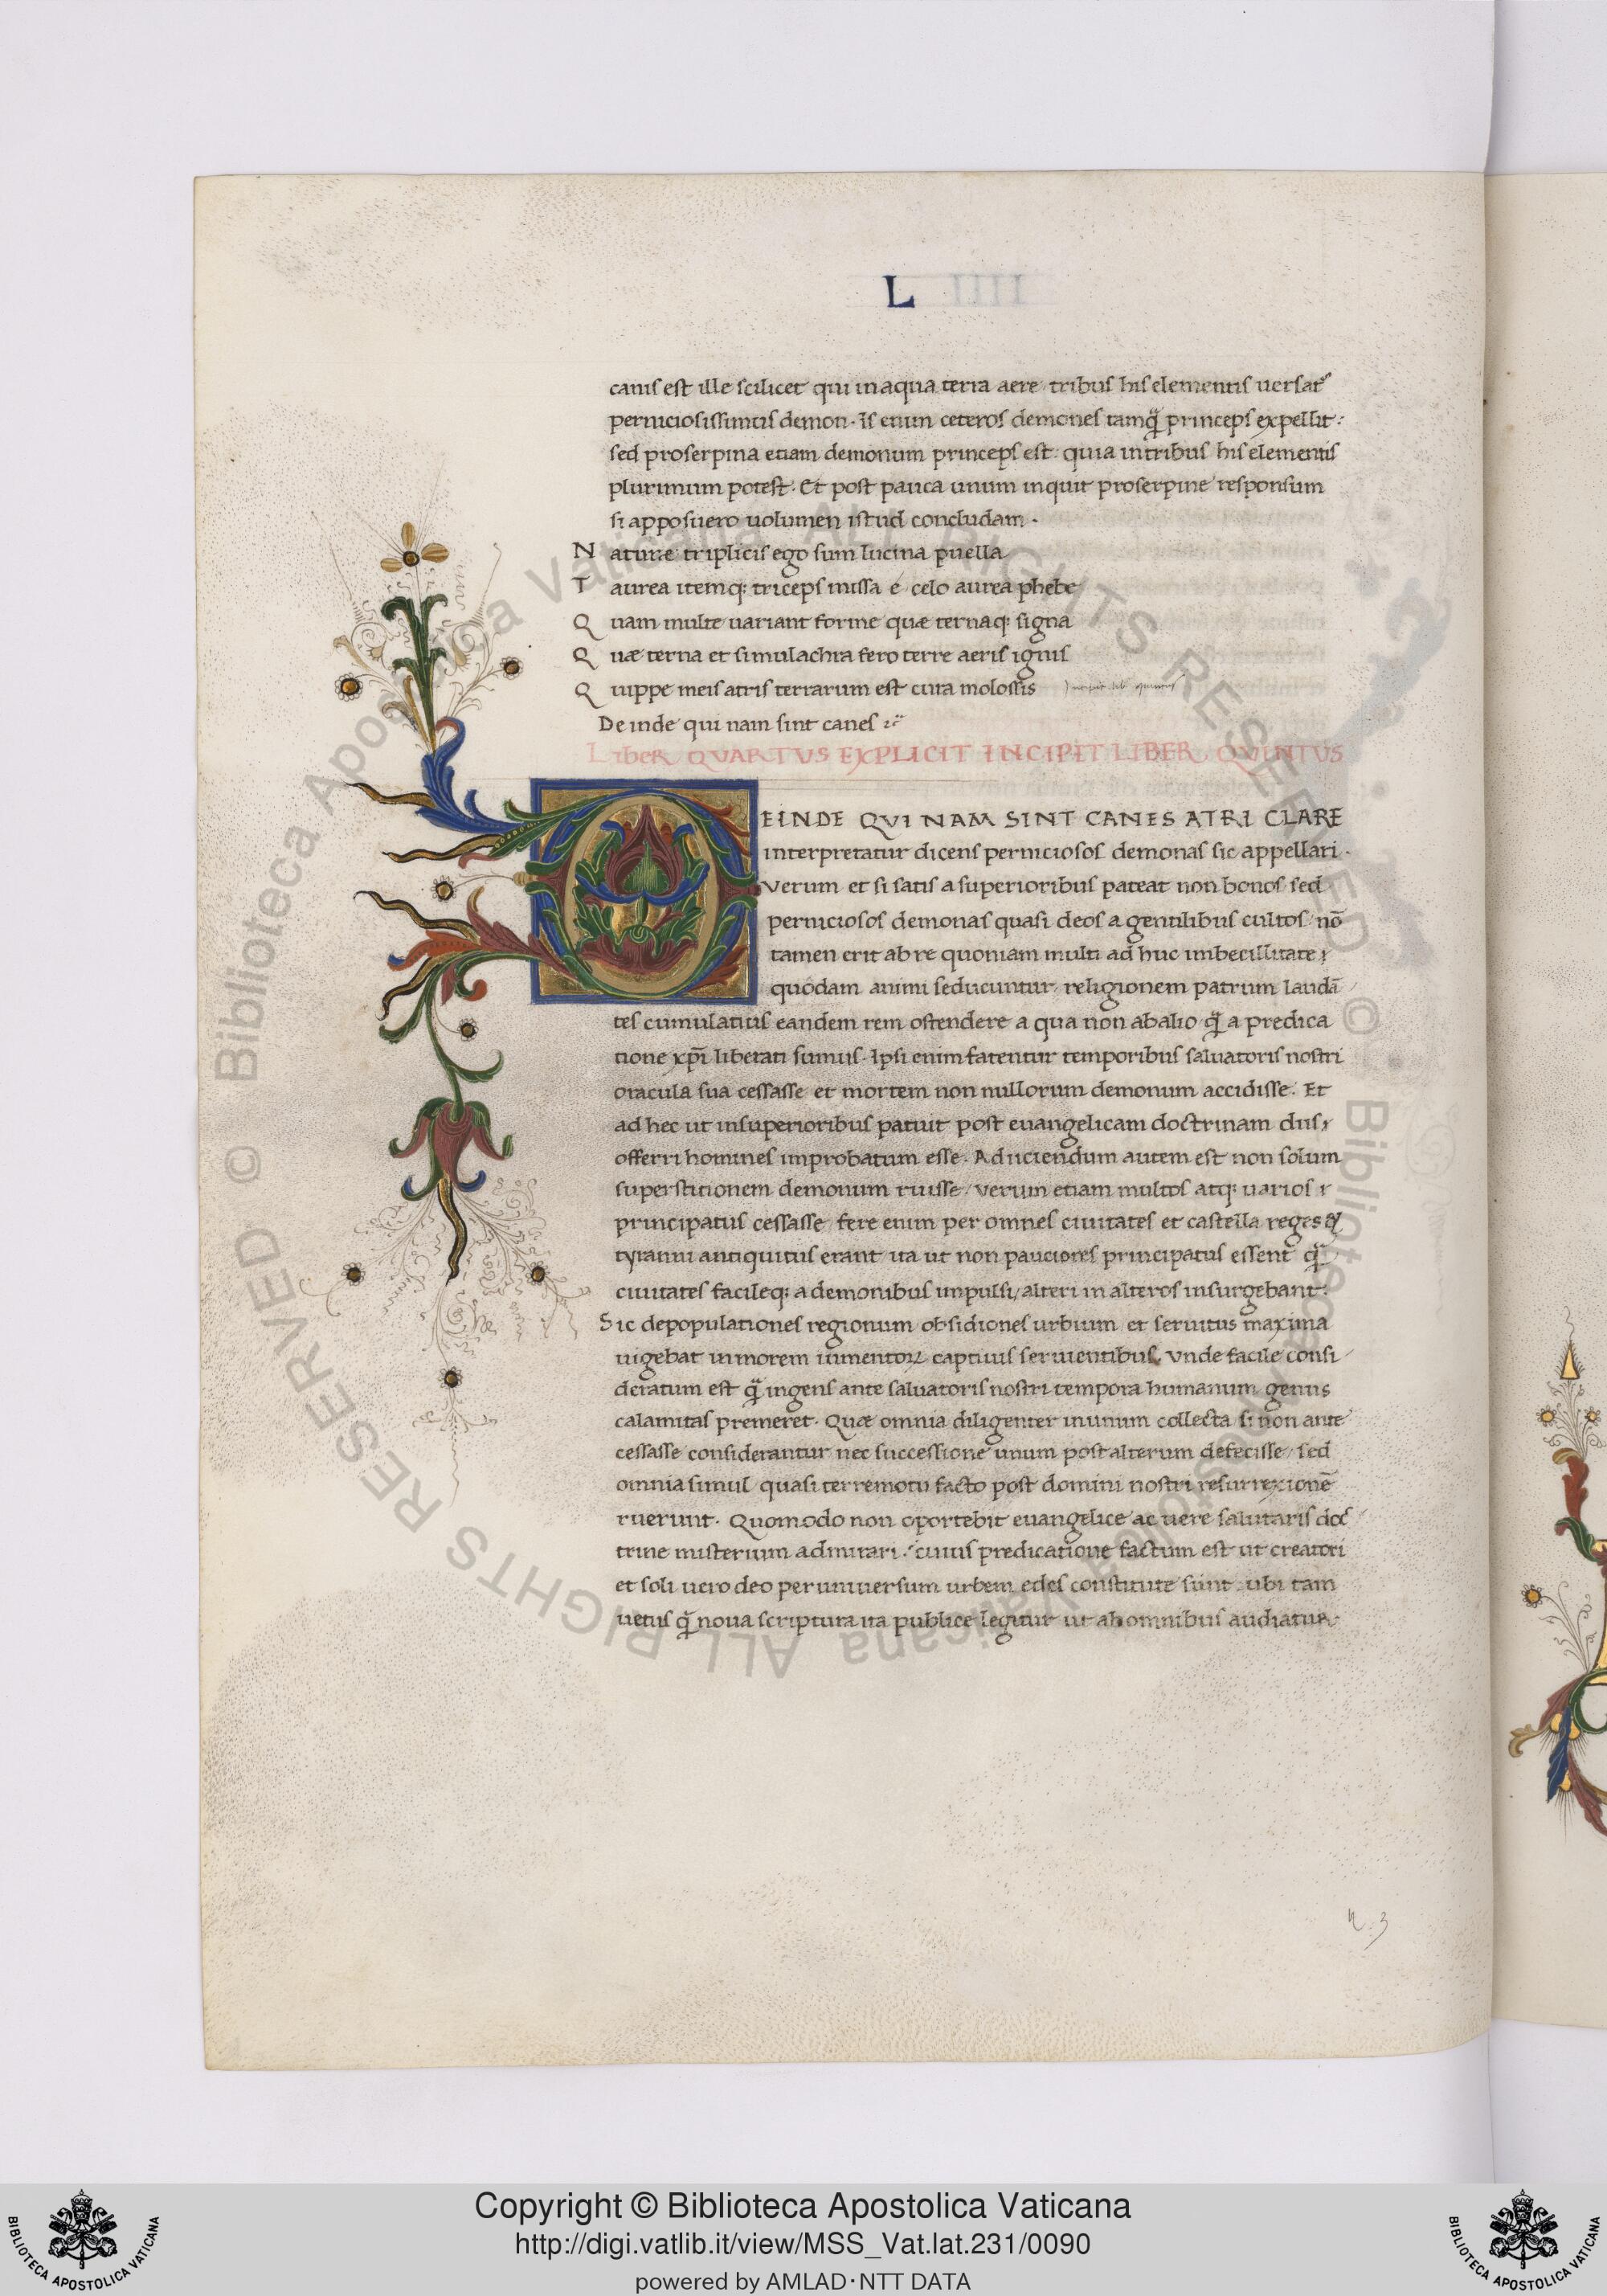 L
canis est ille scilicet qui in aqua terra aere tribus his elementis uersat᷑
perniciosissimus demon. is enim ceteros demones tamq̃ princeps expellit:
sed proserpina etiam demonum princeps est: quia in tribus his elementis
plurimum potest. Et post pauca unum inquit proserpine responsum
si apposuero uolumen istud concludam.
Nature triplicis ego sum lucina puella
Taurea itemq; triceps missa e celo aurea phebe
Quam multe uariant forme quæ ternaq; signa
Quæ terna et simulachra fero terre aeris ignis
Quippe meis atris terrarum est cura molossis
Deinde qui nam sint canes
Liber QUARTUS EXPLICIT INCIPIT LIBER QVINTUS
DEINDE QVI NAM SINT CANES ATRI CLARE
interpretatur dicens perniciosos demonas sic appellari.
Verum et si satis a superioribus pateat non bonos sed
perniciosos demonas quasi deos a gentilibus cultos nō
tamen erit ab re quoniam multi ad huc imbecillitate
quodam animi seducuntur religionem patrum laudā
tes cumulatius eandem rem ostendere a qua non ab alio q̃ a predica
tione xp̄i liberati sumus. Ipsi enim fatentur temporibus saluatoris nostri
oracula sua cessasse et mortem non nullorum demonum accidisse. Et
ad hec ut in superioribus patuit post euangelicam doctrinam diis
offerri homines improbatum esse. Adiiciendum autem est non solum
superstitionem demonum ruisse / verum etiam multos atq; uarios
principatus cessasse fere enim per omnes ciuitates et castella reges
tyranni antiquitus erant ita ut non pauciores principatus essent q̃
ciuitates facileq; a demonibus impulsi / alteri in alteros insurgebant:
Sic depopulationes regionum obsidiones urbium et seruitus maxima
uigebat in morem iumentoꝝ captiuis seruientibus. Vnde facile consi
deratum est q̃ ingens ante saluatoris nostri tempora humanum genus
calamitas premeret. Quæ omnia diligenter in unum collecta si non ante
cessasse considerantur nec successione unum post alterum defecisse / sed
omnia simul quasi terremotu facto post domini nostri resurrexionē
ruerunt. Quomodo non oportebit euangelice ac uere salutaris doc
trine misterium admirari. cuius predicatione factum est ut creatori
et soli uero deo per uniuersum urbem edes constitute sunt ubi tam
uetus q̃ noua scriptura ita publice legitur ut ab omnibus audiatur.
© Biblioteca Apostolica Vaticana ALL RIGHTS RESERVED
© Biblioteca Apostolica Vaticana ALL RIGHTS RESERVED
Copyright © Biblioteca Apostolica Vaticana
http://digi.vatlib.it/view/MSS_Vat.lat.231/0090
powered by AMLAD·NTT DATA
BIBLIOTECA APOSTOLICA VATICANA
BIBLIOTECA APOSTOLICA VATICANA